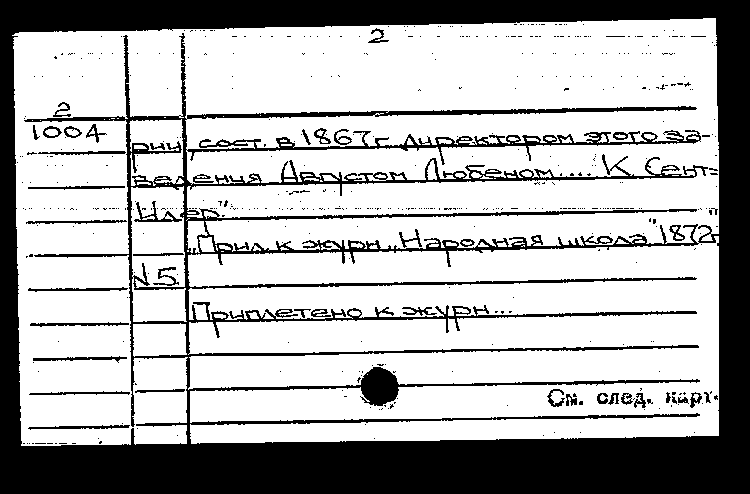 2
2
1004
рии, сост. в 1867 г. директором этого за-
ведения Августом Любеном.... К Сент-
Илер."
„Прил. к журн. „Народная школа" 1872",
N 5.
Приплетено к журн...
См. след. карт.